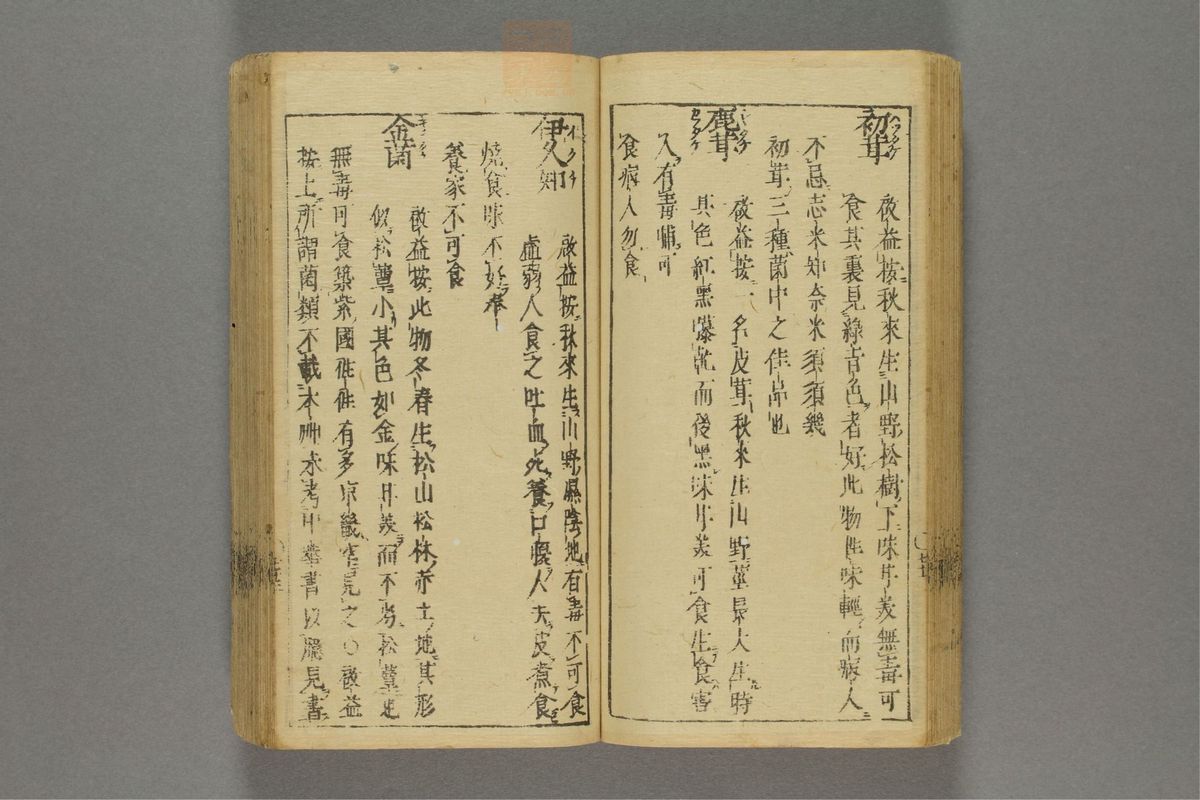 初茸
啓益按秋來生山野松樹下味甘美無毒可
食其裏見綠青色者好此物性味輕而病人
不忌志米知奈米須須幾
初茸三種菌中之佳品也
鹿茸
啓益按一名皮茸秋來生山野莖最大生時
其色紅黑曝乾而後黑味甘美可食生食害
人有毒晡可
食病人勿食
伊久知
啓益按秋來生山野濕陰地有毒不可食
虛弱人食之吐血死養口腹人去皮煮食
燒食味不好奉
養家不可食
金菌
啓益按此物冬春生松山松林赤土地其形
似松蕈小其色如金味甘美而不劣松蕈也
無毒可食築紫國徃徃有多京畿罕見之○啓益
按上所謂菌類不載本艸求考中華書以臆見書